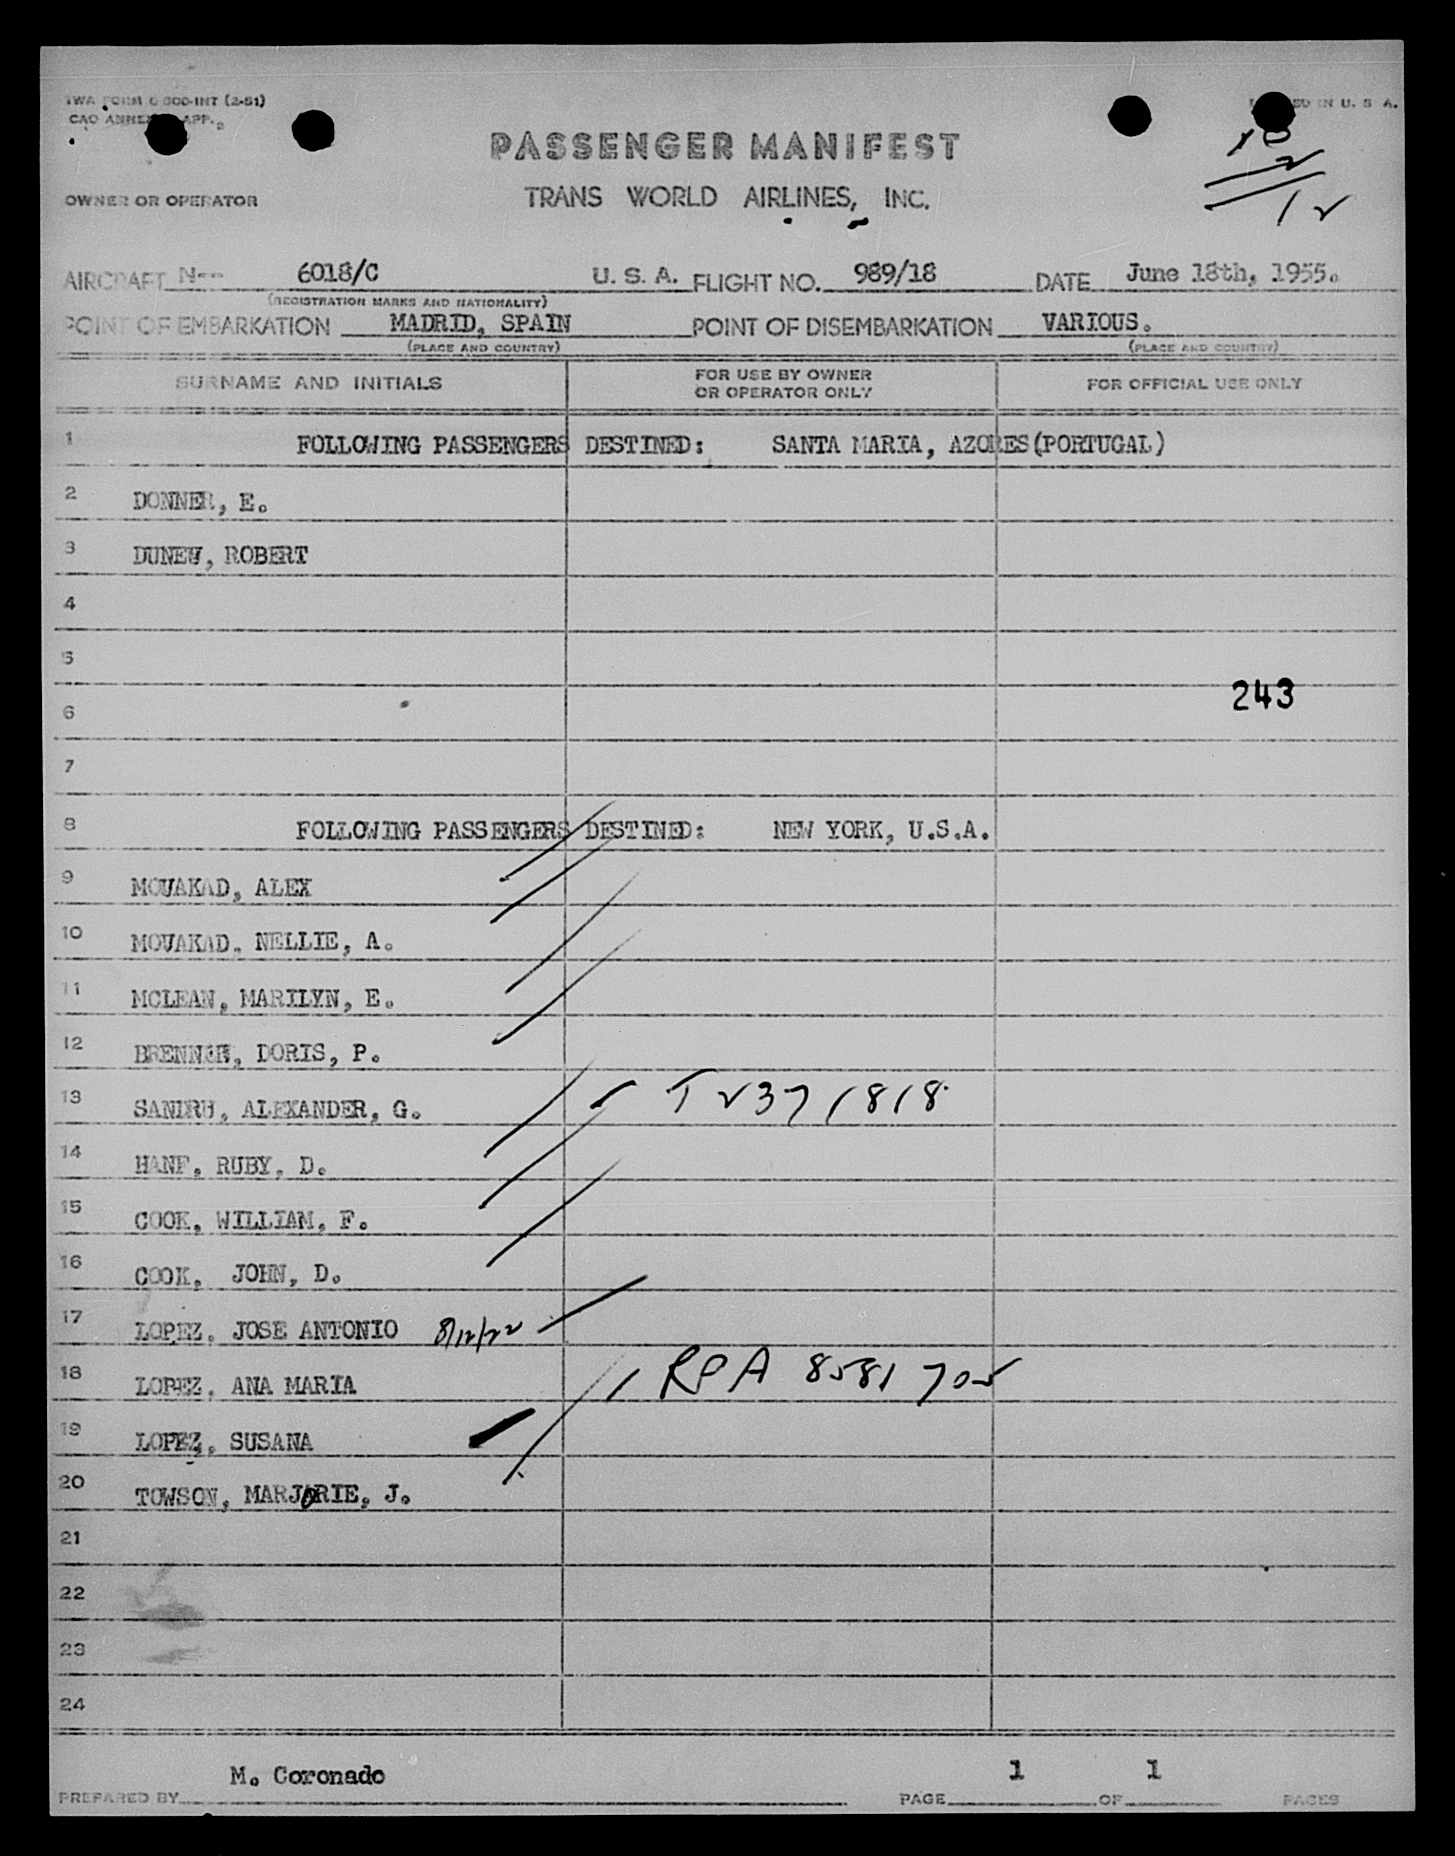 TWA FORM 0 800-INT (2-51)
PRINTED IN U. S. A.
CAO ANNEX APP.
10
2
12
PASSENGER MANIFEST
OWNER OR OPERATOR
TRANS WORLD AIRLINES, INC.
AIRCRAFT N-- 6018/C U. S. A. FLIGHT NO. 989/18 DATE June 18th, 1955.
(REGISTRATION MARKS AND NATIONALITY)
POINT OF EMBARKATION MADRID, SPAIN POINT OF DISEMBARKATION VARIOUS.
(PLACE AND COUNTRY) (PLACE AND COUNTRY)
SURNAME AND INITIALS FOR USE BY OWNER OR OPERATOR ONLY FOR OFFICIAL USE ONLY
1 FOLLOWING PASSENGERS DESTINED: SANTA MARIA, AZORES(PORTUGAL)
2 DONNER, E.
3 DUNEW, ROBERT
4
5
243
6
7
8 FOLLOWING PASSENGERS DESTINED: NEW YORK, U.S.A.
9 MOUAKAD, ALEX
10 MOUAKAD, NELLIE, A.
11 MCLEAN, MARILYN, E.
12 DORIS, P.
13 ALEXANDER, G. T2371818
14 HANF, RUBY, D.
15 COOK, WILLIAM, F.
16 COOK, JOHN, D.
17 LOPEZ, JOSE ANTONIO 8/12/22
18 LOPEZ, ANA MARIA RPA 8581705
19 LOPEZ, SUSANA
20 TOWSON, MARJORIE, J.
21
22
23
24
PREPARED BY M. Coronado PAGE 1 OF 1 PAGES